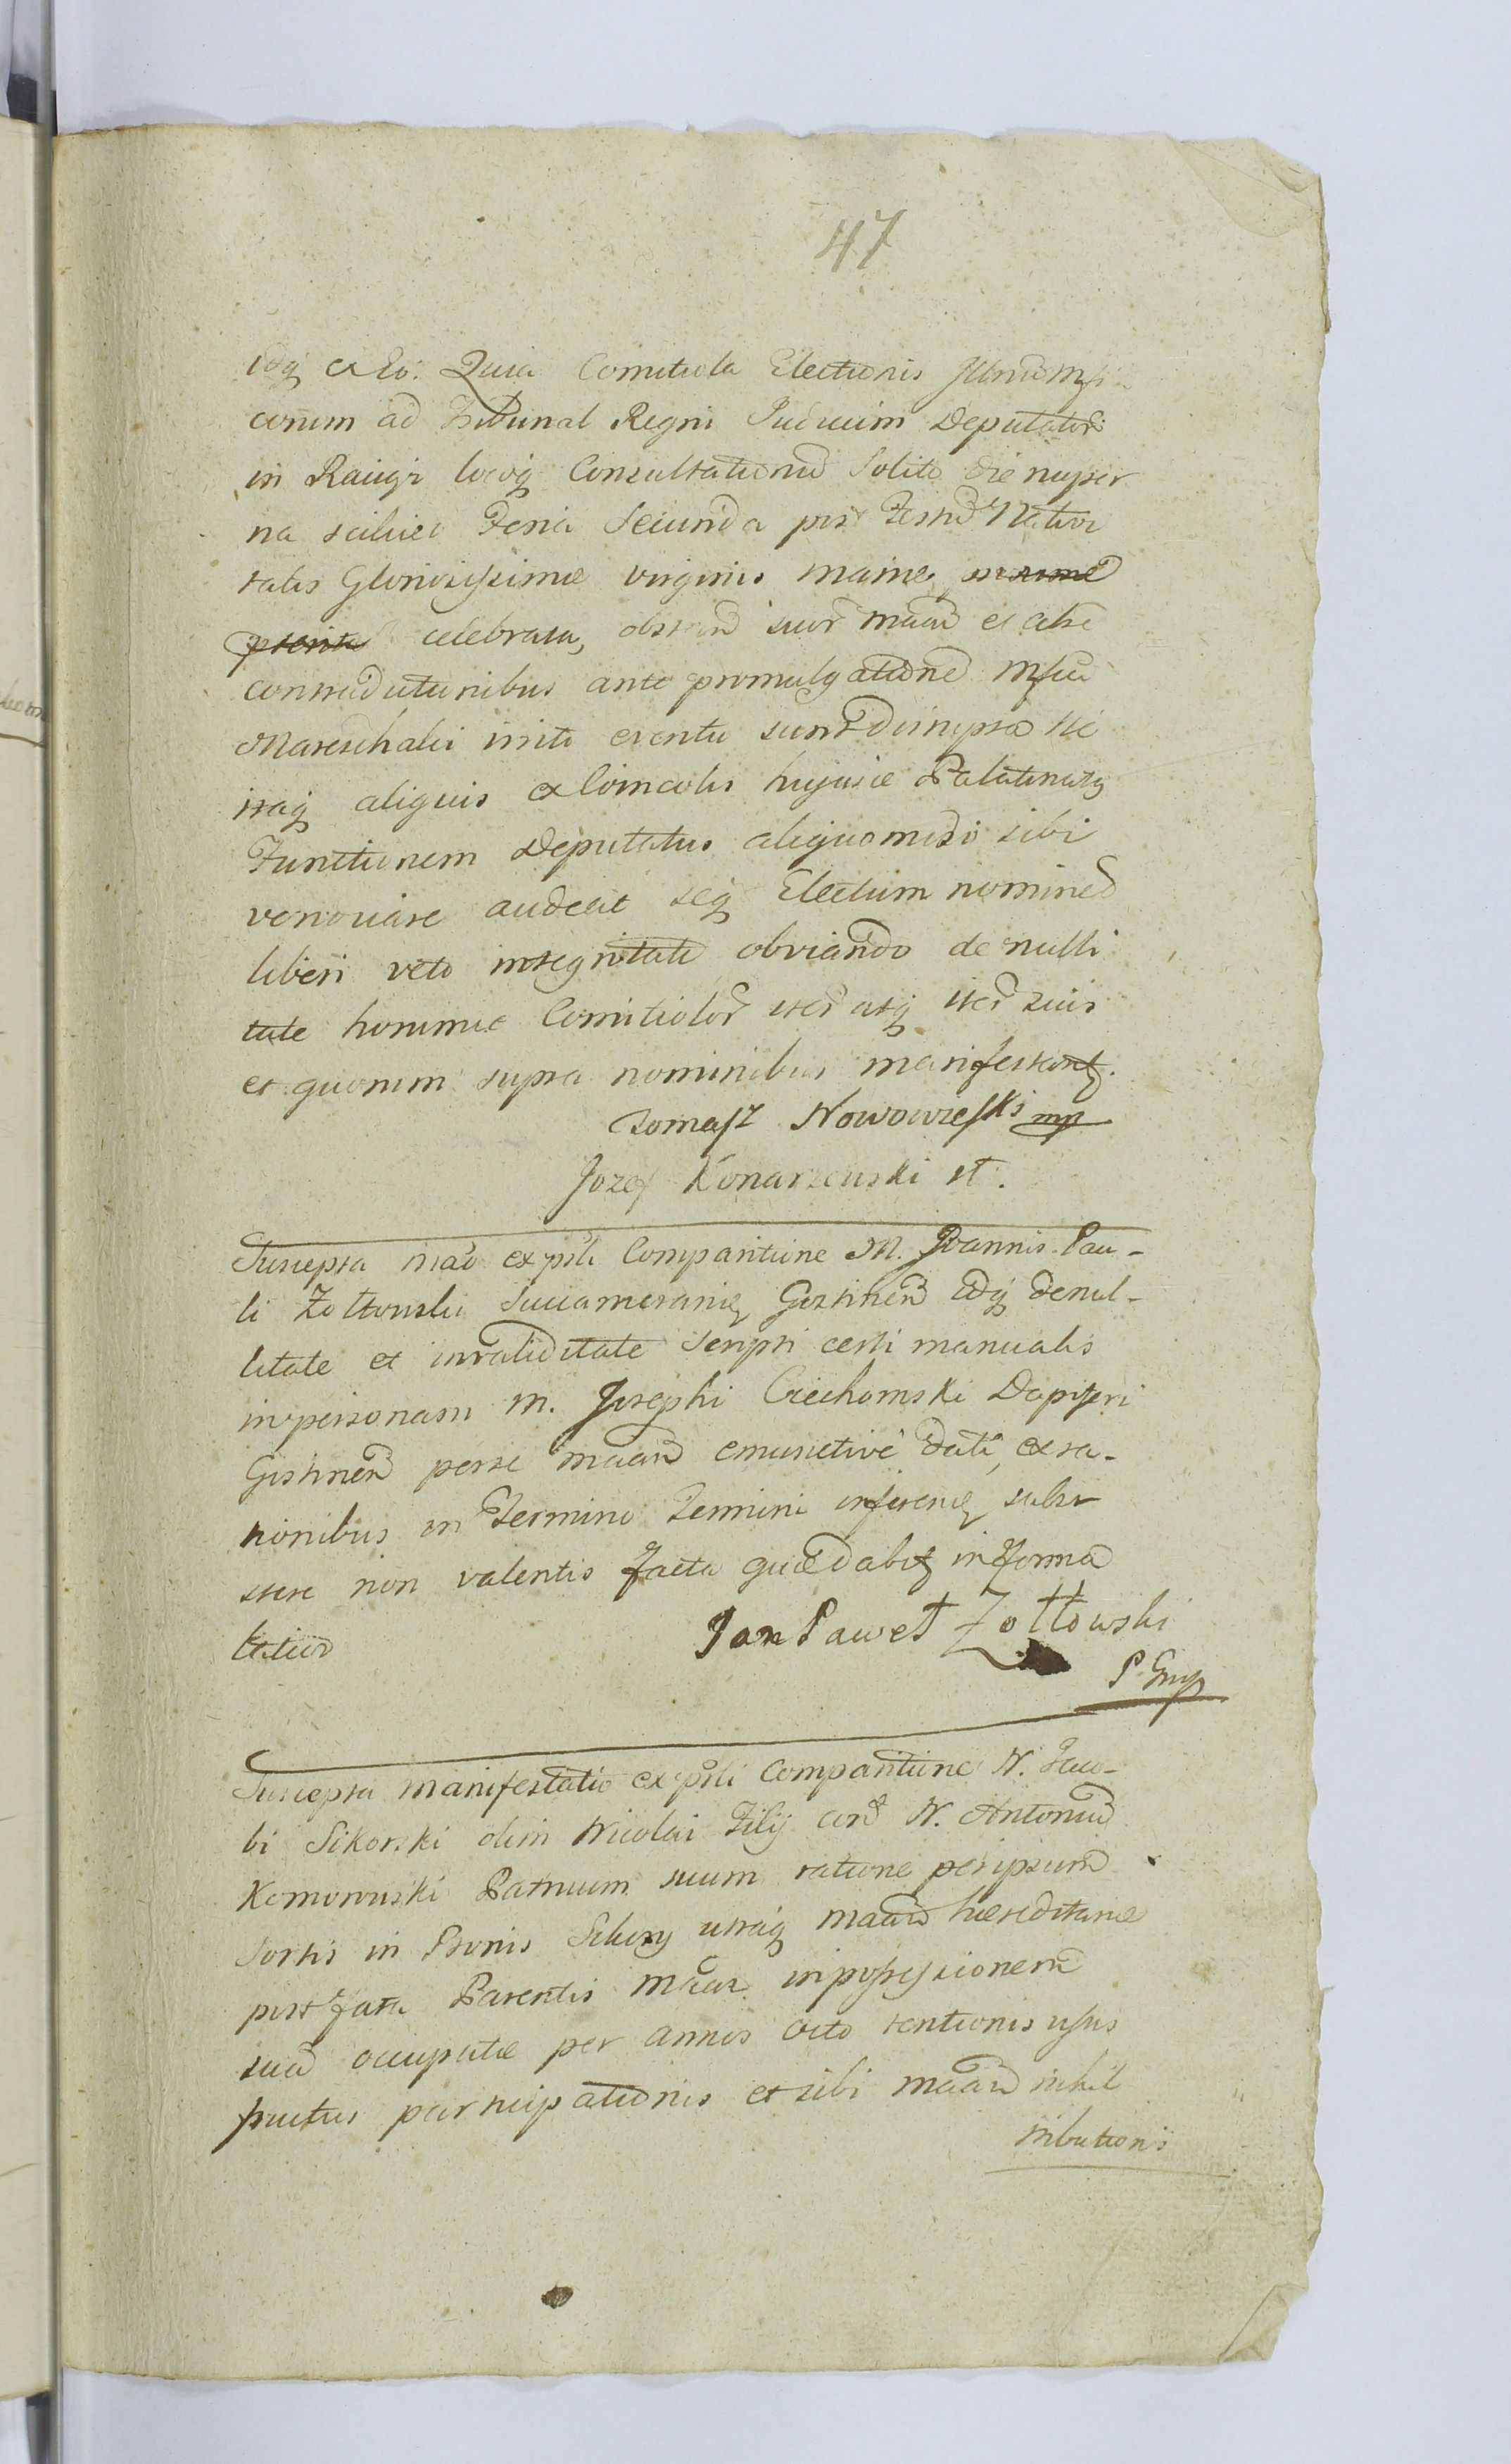 47
idq ex Eo. Quia Comitiola Electionis
corum ad Tribunal Regni Judicum Deputator
in Raiigz locoq Consultationu Solito die nuper
na scilicet Feria Secunda post Festu Nativi
tatis Gloriosissimæ virginis Mariæ
celebrata, obstan suor et
contradictionibus ante promulgatione
Mareschalci irrito eventu sunt disrupta Ne
itaq aliquis ex Comcolis hujusce Palatinatq
Functionem Deputatus aliquomodo sibi
vendicare audeat seq Electum nomine
liberi veto integritati obviando de nulli
tate horumce Comitiolor iter atq iter suis
et quorum supra nominibus manifestant.
Tomasz Nowowieski mp
Jozef Konarzewski st.
Suscepta Mao ex psli Comparitione M. Joannis Pau-
li Zołtowski Succamerarii Gostinen Idq de nul-
litate et invaliditate Scripti certi manualis
in personam M. Josephi Ciechomski Dapiferi
Gostinen per se maan emunctivè dati, ex ra-
tionibus in Termino Termini inferen, subsi
stere non valentis facta quæ dabit in forma
latiori
Jan Paweł Zołtowski
P. Gmp
Suscepta Manifestatio ex psli Comparitione N. Jaco-
bi Sikorski olim Nicolai Filij con N. Antoniu
Komorowski Patruum suum ratione per ipsum
Sortis in Bonis Sikory utraq maan hæreditariæ
post fata Parentis maan in possessionem
sua occupatæ per annos octo tentionis usus
fructus participationis et sibi maan nihil
tributionis